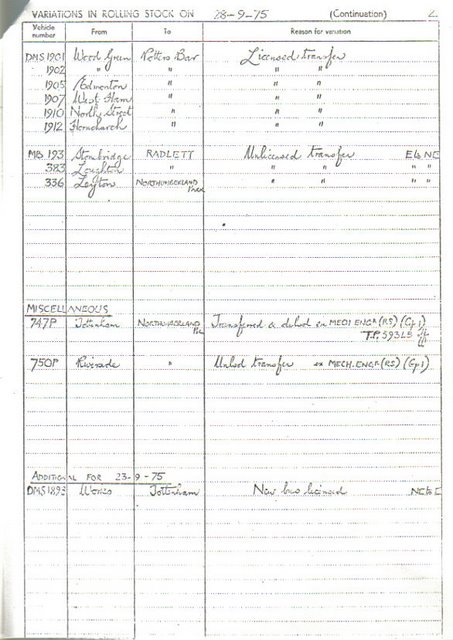 VARIATIONS IN ROLLING STOCK ON 28-9-75 (Continuation) 2
Vehicle number From To Reason for variation
DMS 1901 Wood Green Potters Bar Licensed transfer
1902 " " " "
1905 Edmonton " " "
1907 West Ham " " "
1910 North Street " " "
1912 Hornchurch " " "
MB 193 Stonebridge RADLETT Unlicensed transfer E to NC
383 Loughton " " " " "
336 Leyton NORTHUMBERLAND PARK " " " "
MISCELLANEOUS
747P Tottenham NORTHUMBERLAND PK Transferred & delicd ex MECH ENGR (RS) (Gp 1)
T.P. 593LS
750P Riverside " Unlicd transfer ex MECH. ENGR (RS) (Gp 1)
ADDITIONAL FOR 23-9-75
DMS 1893 Works Tottenham New bus licensed NC to E